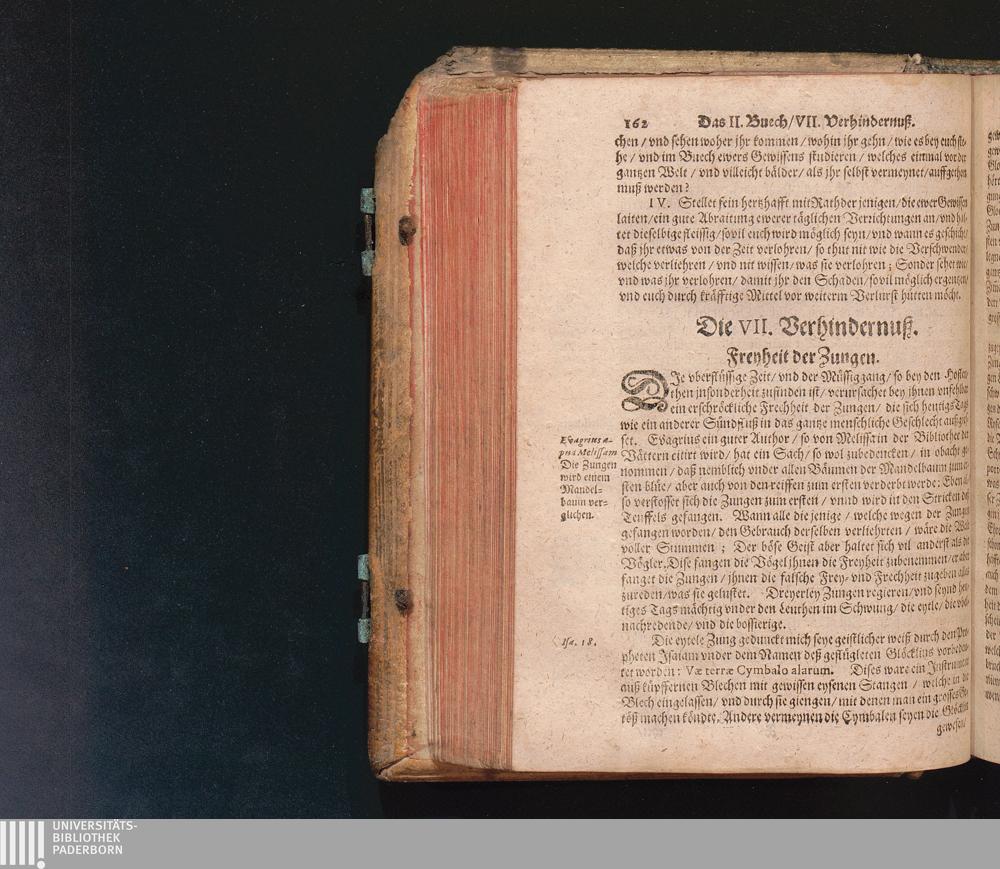 162 Das II. Buech/VII. Verhindernuß.
chen / vnd sehen woher jhr kommen / wohin jhr gehn / wie es bey euch ste-
he / vnd im Buech ewers Gewissens studieren / welches einmal vor der
gantzen Welt / vnd villeicht bälder / als jhr selbst vermeynet/auffgethon
muß werden?
IV. Stellet fein hertzhafft mit Rath der jenigen / die ewer Gewissen
laiten/ein gute Abraitung ewerer täglichen Verrichtungen an/vnd hal-
tet dieselbige fleissig/sovil euch wird möglich seyn/vnd wann es geschicht/
daß jhr etwas von der Zeit verlohren / so thut nit wie die Verschwender/
welche verliehren / vnd nit wissen / was sie verlohren ; Sonder sehet wie/
vnd was jhr verlohren / damit jhr den Schaden/sovil möglich ergentzen/
vnd euch durch kräfftige Mittel vor weiterm Verlurst hütten möcht.
Die VII. Verhindernuß.
Freyheit der Zungen.
DJe vberflüssige Zeit / vnd der Müssiggang / so bey den Hofleu-
then jnsonderheit zufinden ist / verursachet bey jhnen vnfehlbar
ein erschröckliche Frechheit der Zungen / die sich heutigs Tags
wie ein anderer Sündfluß in das gantze menschliche Geschlecht außgies-
set. Evagrius ein guter Author / so von Melissa in der Bibliothec der
Vättern citirt wird / hat ein Sach / so wol zubedencken / in obacht ge-
nommen / daß nemblich vnder allen Bäumen der Mandelbaum zum er-
sten blüe / aber auch von den reiffen zum ersten verderbt werde: Eben al-
so verstosset sich die Zungen zum ersten / vnnd wird in den Stricken deß
Teuffels gefangen. Wann alle die jenige / welche wegen der Zungen
gefangen worden / den Gebrauch derselben verliehrten / wäre die Welt
voller Stummen ; Der böse Geist aber haltet sich vil anderst als die
Vögler. Dise fangen die Vögel jhnen die Freyheit zubenemmen / er aber
fanget die Zungen / jhnen die falsche Frey- vnd Frechheit zugeben alles
zureden / was sie gelustet. Dreyerley Zungen regieren / vnd seynd heu-
tiges Tags mächtig vnder den Leuthen im Schwung / die eytle / die vbel-
nachredende / vnd die bossierige.
Die eytele Zung geduncket mich seye geistlicher weiß durch den Pro-
pheten Jsaiam vnder dem Namen deß geflügleten Glöcklins vorbedeu-
tet worden: Væ terræ Cymbalo alarum. Dises ware ein Jnstrument
auß küpffernen Blechen mit gewissen eysenen Stangen / welche in die
Blech eingelassen / vnd durch sie giengen / mit denen man ein grosses Ge-
töß machen köndte. Andere vermeynen die Cymbalen seyen die Glöcklin
gewesen/
Evagrius a-
pud Melissam
Die Zungen
wird einem
Mandel-
baum ver-
glichen.
Isa. 18.
UNIVERSITÄTS-
BIBLIOTHEK
PADERBORN